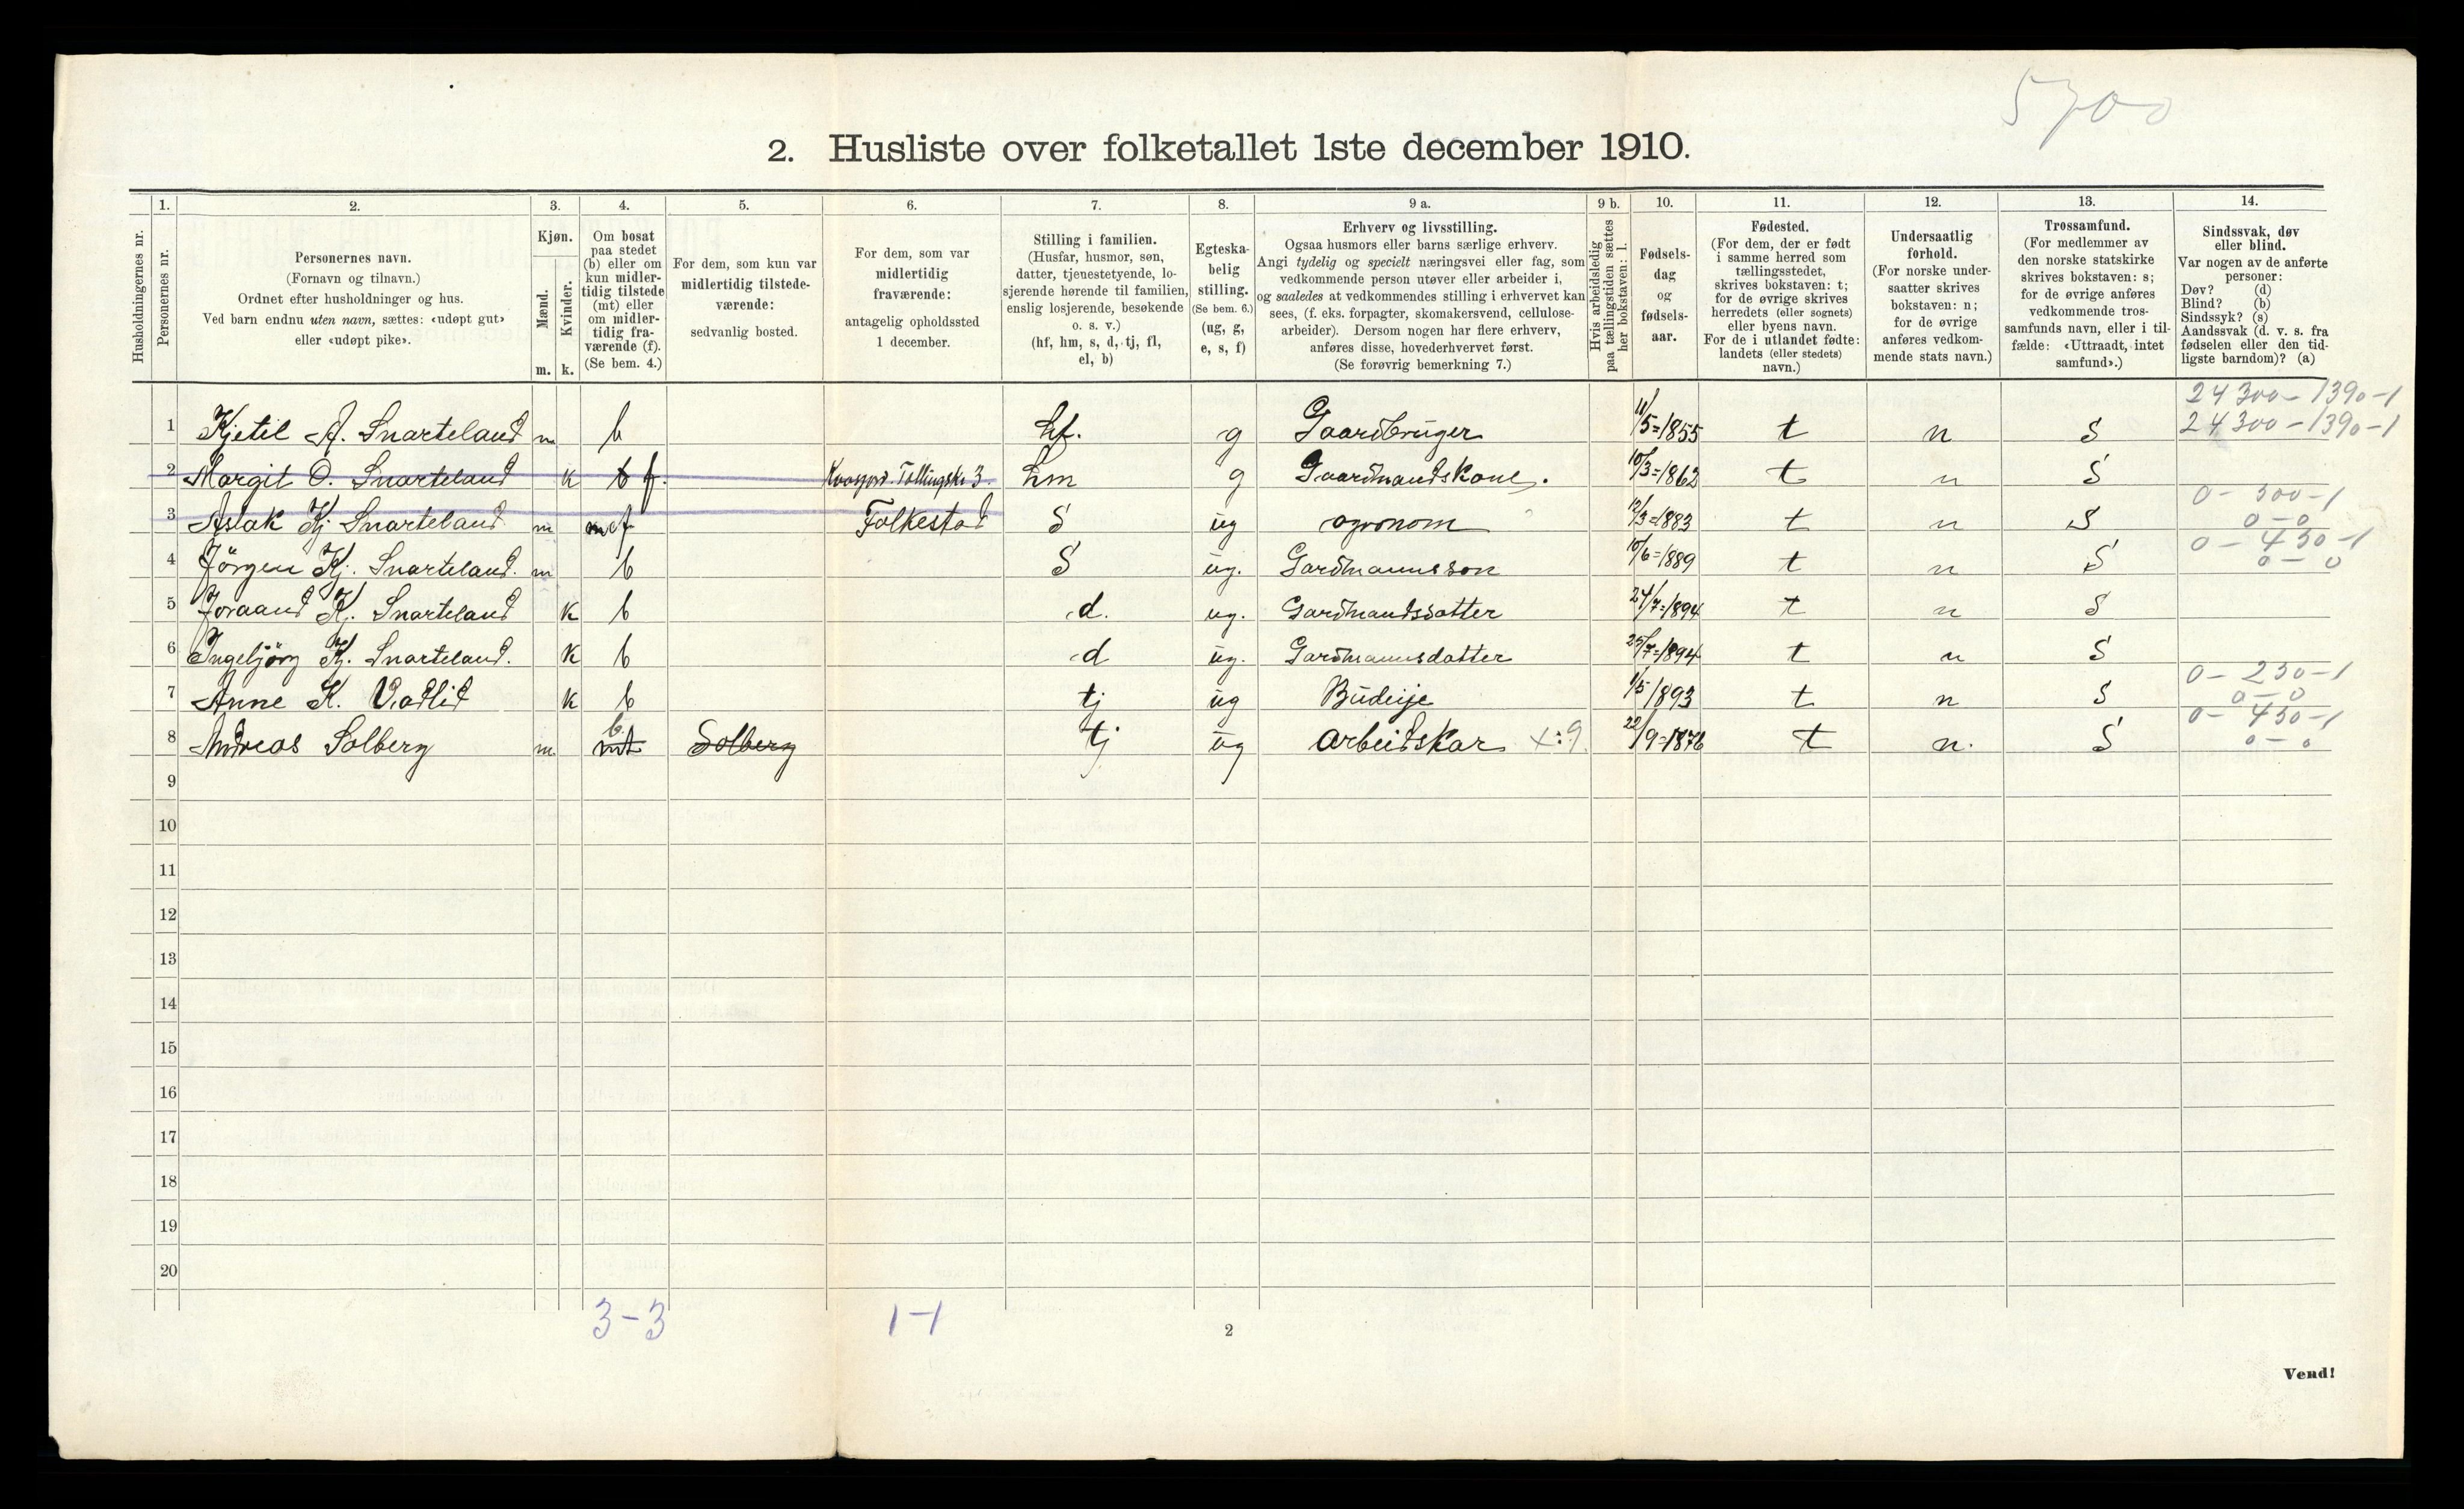 5700
2. Husliste over folketallet 1ste december 1910.
1. 2. 3. 4. 5. 6. 7. 8. 9 a. 9 b. 10. 11. 12. 13. 14.
Husholdningernes nr.
Personernes nr.
Personernes navn.
(Fornavn og tilnavn.)
Ordnet efter husholdninger og hus.
Ved barn endnu uten navn, sættes: «udøpt gut»
eller «udøpt pike».
Kjøn.
Mænd.
Kvinder.
m. k.
Om bosat
paa stedet
(b) eller om
kun midler-
tidig tilstede
(mt) eller
om midler-
tidig fra-
værende (f).
(Se bem. 4.)
For dem, som kun var
midlertidig tilstede-
værende:
sedvanlig bosted.
For dem, som var
midlertidig
fraværende:
antagelig opholdssted
1 december.
Stilling i familien.
(Husfar, husmor, søn,
datter, tjenestetyende, lo-
sjerende hørende til familien,
enslig losjerende, besøkende
o. s. v.)
(hf, hm, s, d, tj, fl,
el, b)
Egteska-
belig
stilling.
(Se bem. 6.)
(ug, g,
e, s, f)
Erhverv og livsstilling.
Ogsaa husmors eller barns særlige erhverv.
Angi tydelig og specielt næringsvei eller fag, som
vedkommende person utøver eller arbeider i,
og saaledes at vedkommendes stilling i erhvervet kan
sees, (f. eks. forpagter, skomakersvend, cellulose-
arbeider). Dersom nogen har flere erhverv,
anføres disse, hovederhvervet først.
(Se forøvrig bemerkning 7.)
Hvis arbeidsledig
paa tællingstiden sættes
her bokstaven: l.
Fødsels-
dag
og
fødsels-
aar.
Fødested.
(For dem, der er født
i samme herred som
tællingsstedet,
skrives bokstaven: t;
for de øvrige skrives
herredets (eller sognets)
eller byens navn.
For de i utlandet fødte:
landets (eller stedets)
navn.)
Undersaatlig
forhold.
(For norske under-
saatter skrives
bokstaven: n;
for de øvrige
anføres vedkom-
mende stats navn.)
Trossamfund.
(For medlemmer av
den norske statskirke
skrives bokstaven: s;
for de øvrige anføres
vedkommende tros-
samfunds navn, eller i til-
fælde: «Uttraadt, intet
samfund».)
Sindssvak, døv
eller blind.
Var nogen av de anførte
personer:
Døv? (d)
Blind? (b)
Sindssyk? (s)
Aandssvak (d. v. s. fra
fødselen eller den tid-
ligste barndom)? (a)
24300-1390-1
1 Kjetil A. Snarteland m b hf. g Gaardbruger 11/5=1855 t n S 24300-1390-1
2 Margit O. Snarteland k b f. Tællingskr 3. hm g Gaardmandskone. 10/3=1862 t n S
0-300-1
3 Aslak Kj Snarteland m f Folkestad S ug agronom 12/3=1883 t n S 0-0
0-450-1
4 Jörgen Kj. Snarteland. m b S ug. Gardmannsson 10/6=1889 t n S 0-0
5 Joraand Kj. Snarteland k b d. ug. Gardmandsdatter 24/7=1894 t n S
6 Ingebjörg Kj. Snarteland. k b d ug. Gardmannsdatter 25/7=1894 t n S
0-250-1
7 Anne K. Vadlid k b tj ug Budeije 1/5 1893 t n S 0-0
0-450-1
8 Andreas Solberg m b mt Solberg tj ug Arbeidskar x:9 22/9=1876 t n. S 0-0
9
10
11
12
13
14
15
16
17
18
19
20
3-3 1-1
2
Vend!